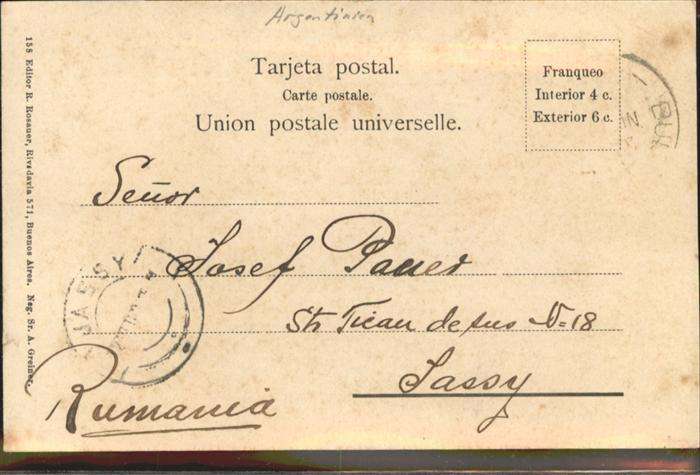 Argentinien
Tarjeta postal.
Carte postale.
Union postale universelle.
Franqueo
Interior 4 c.
Exterior 6 c.
BU
Señor
Josef Pauer
Str Ticau de sus No 18
Jassy
Rumania
JASSY
158 Editor R. Rosauer, Rivadavia 571, Buenos Aires. Neg. Sr. A. Greiner.